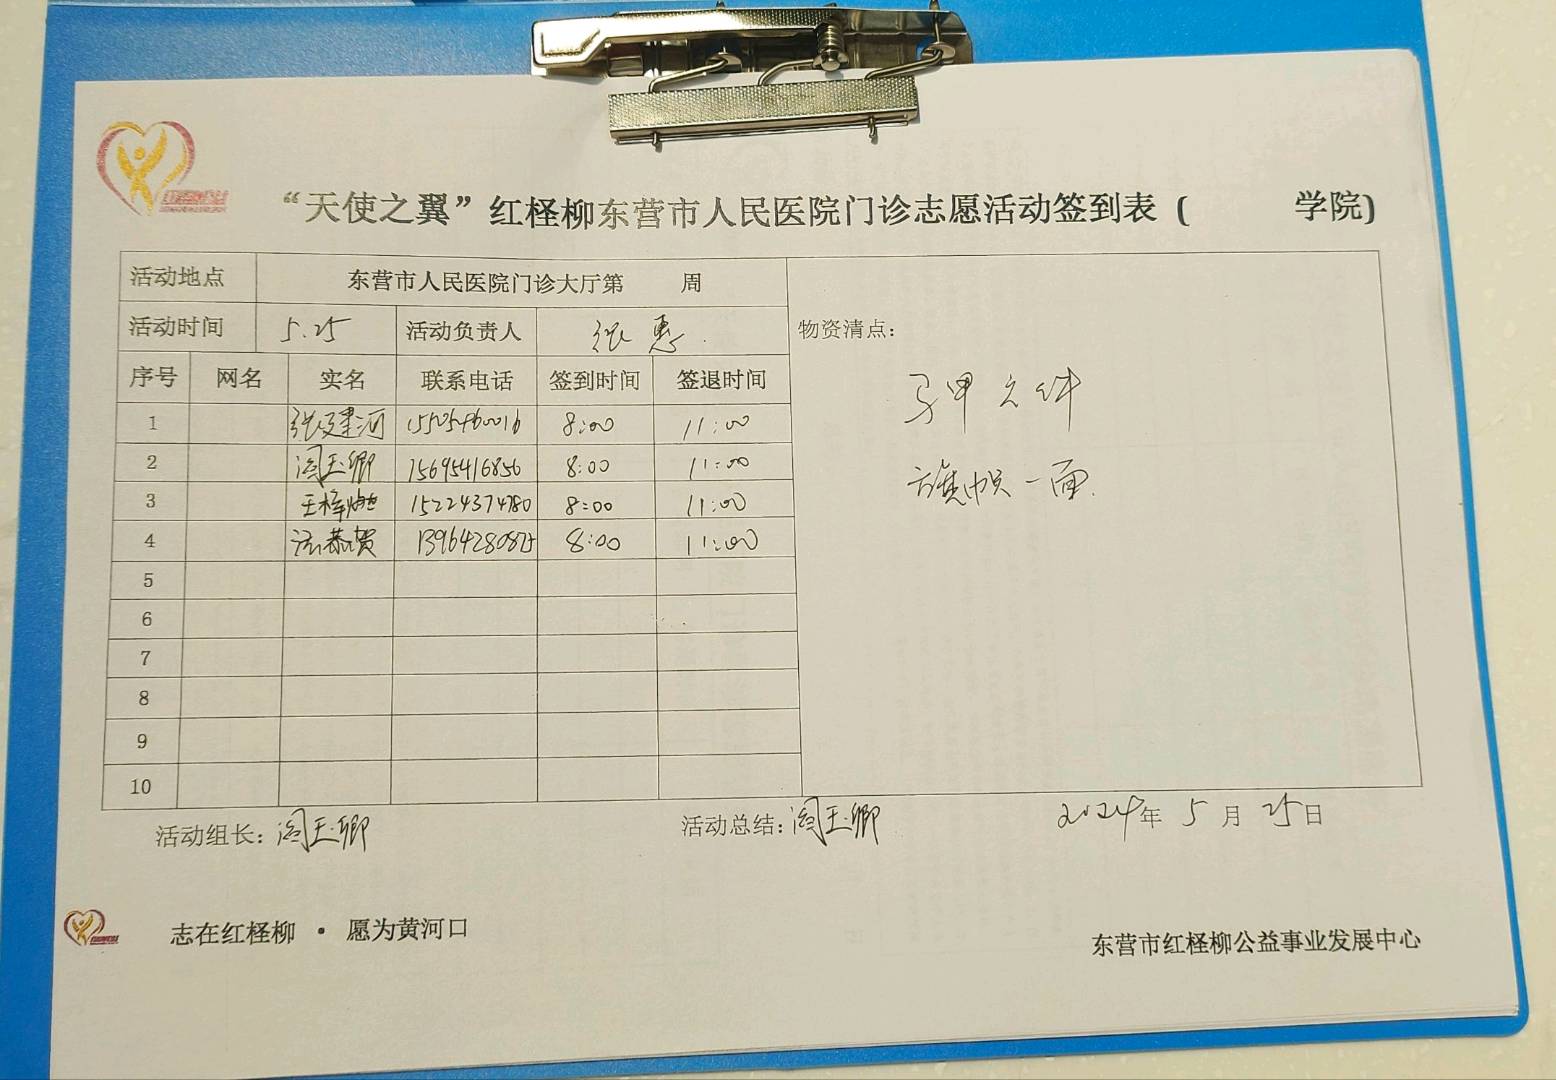 “天使之翼”红柽柳东营市人民医院门诊志愿活动签到表（ 学院)
活动地点 东营市人民医院门诊大厅第 周
活动时间 5.25 活动负责人 张惠
物资清点：
序号 网名 实名 联系电话 签到时间 签退时间
1 张建河 15505460016 8:00 11:00
2 阎玉卿 15695416856 8:00 11:00
3 王梓燃 15224374780 8:00 11:00
4 8:00 11:00
5
6
7
8
9
10
马甲 六件
旗帜一面.
活动组长：阎玉卿 活动总结：阎玉卿 2024年 5 月 25日
志在红柽柳 · 愿为黄河口
东营市红柽柳公益事业发展中心